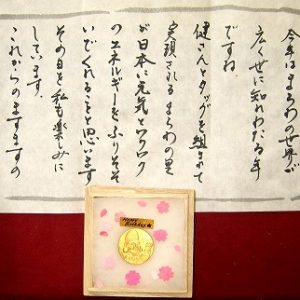 今年はまろわの世界が
広く世に知れわたる年
ですね
健さんとタッグを組まれて
実現されるまろわの里
が日本に元気とワクワク
のエネルギーをふりそそ
いでくれることと思います
その日を私も楽しみに
しています.
これからのますますの
Happy
Birthday★